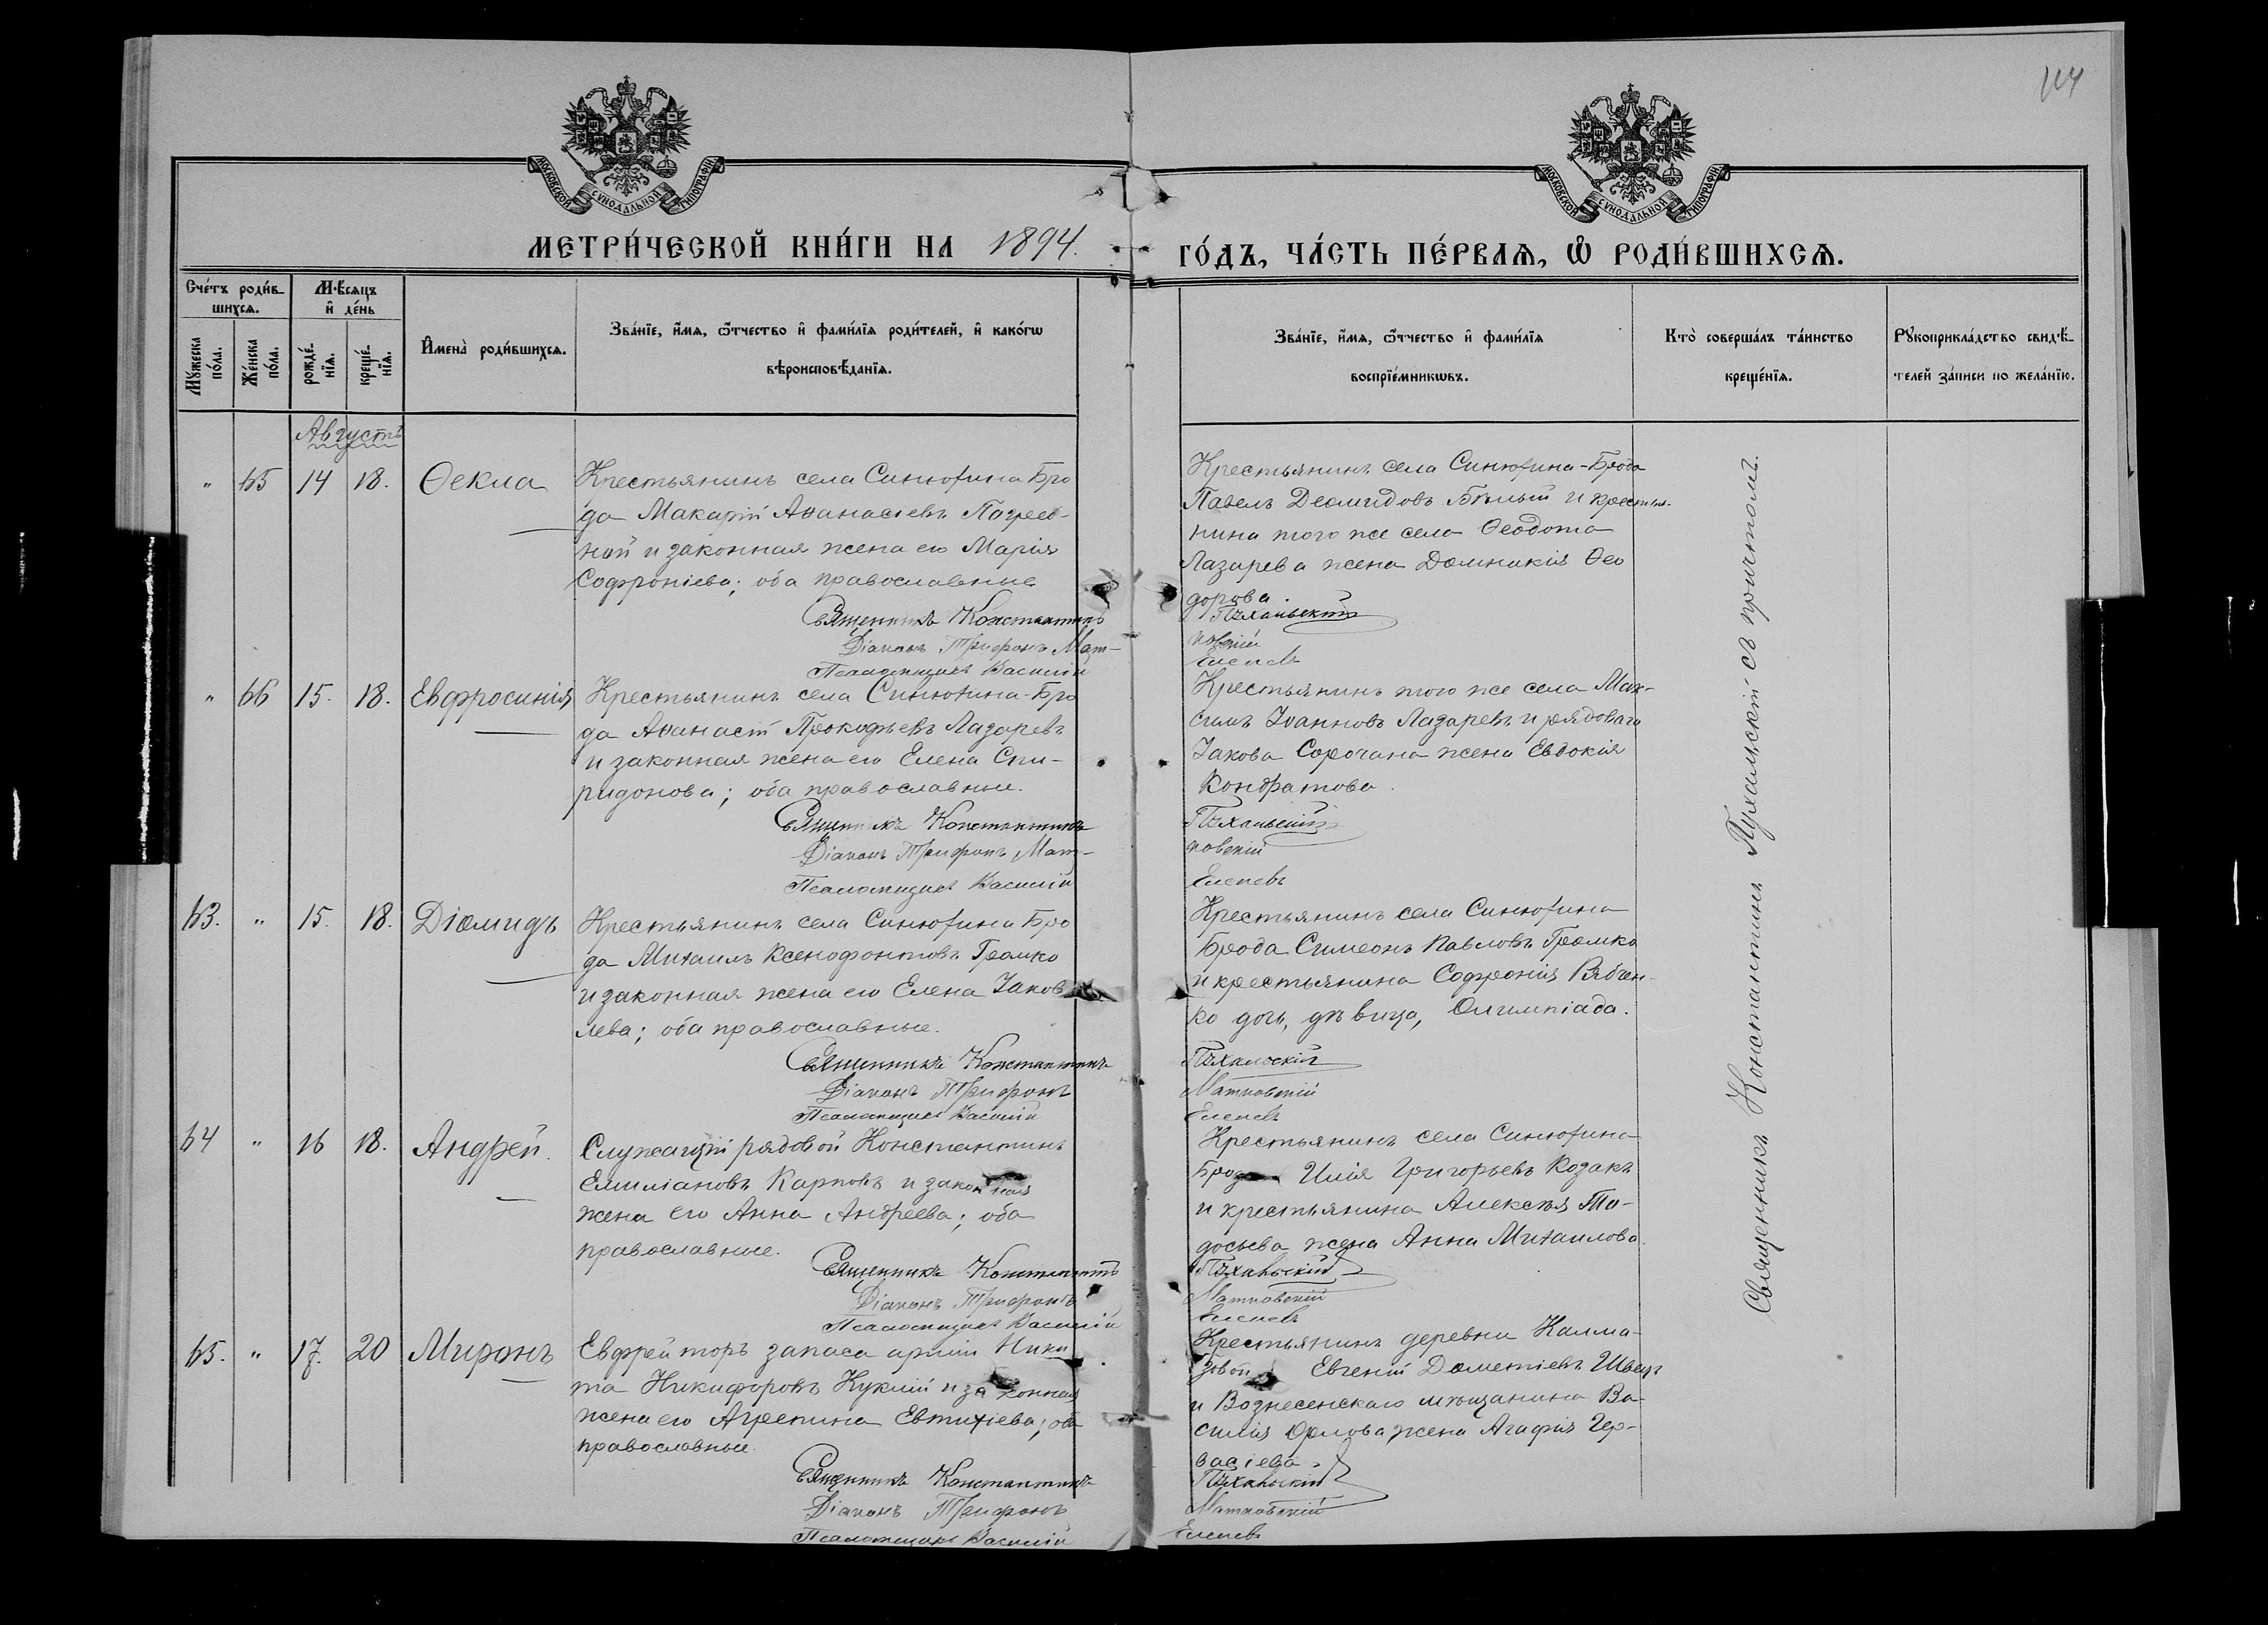 114
МОСКОВСКОЙ СѴНОДАЛЬНОЙ ТИПОГРАФІИ
МОСКОВСКОЙ СѴНОДАЛЬНОЙ ТИПОГРАФІИ
МЕТРИ́ЧЕСКОЙ КНИ́ГИ НА 1894.
ГО́ДЪ, ЧА́СТЬ ПЕ́РВАѦ, Ѽ РОДИ́ВШИХСѦ.
Сче́тъ роди́в-
шихсѧ.
Мꙋ́жеска по́ла.
Же́нска по́ла.
Мѣ́сяцъ
и҆ де́нь
рожде́-нїѧ.
креще́-нїѧ.
И҆мена̀ роди́вшихсѧ.
Зва́нїе, и҆́мѧ, ѻ҆́тчество и҆ фами́лїѧ роди́телей, и҆ како́гѡ
вѣроисповѣ́данїѧ.
Зва́нїе, и҆́мѧ, ѻ҆́тчество и҆ фами́лїѧ
воспрїе́мникѡвъ.
Кто̀ соверша́лъ та́инство
креще́нїѧ.
Рꙋкоприкла́дство свидѣ́-
телей за́писи по жела́нїю.
Августъ
" 65 14 18. Ѳекла
Крестьянинъ села Синюхина Бро
да Макарій Аѳанасіевъ Погреб-
ной и законная жена его Марія
Софроніева; оба православные
Священникъ Константинъ
Діаконъ Трифонъ Мат-
Псаломщикъ Василій
Крестьянинъ села Синюхина-Брода
Павелъ Деомидовъ Бѣлый и крестья-
нина того же села Ѳеодота
Лазарева жена Домникія Ѳео
дорова.
Пухальскій
ковскій
Елепевъ
" 66 15. 18. Евфросинія
Крестьянинъ села Синюхина-Бро
да Аѳанасій Прокофьевъ Лазаревъ
и законная жена его Елена Спи-
ридонова; оба православные.
Священникъ Константинъ
Діаконъ Трифонъ Мат-
Псаломщикъ Василій
Крестьянинъ того же села Мак-
симъ Іоанновъ Лазаревъ и рядового
Іакова Сорочана жена Евдокія
Кондратова.
Пухальскій
ковскій
Елепевъ
63. " 15. 18. Діомидъ
Крестьянинъ села Синюхина Бро
да Михаилъ Ксенофонтовъ Громко
и законная жена его Елена Іаков
лева; оба православные.
Священникъ Константинъ
Діаконъ Трифонъ
Псаломщикъ Василій
Крестьянинъ села Синюхина
Брода Симеонъ Павловъ Громко
и крестьянина Софронія Рябчен-
ко дочь, дѣвица, Олимпіада.
Пухальскій
Матковскій
Елепевъ
64 " 16 18. Андрей.
Служащій рядовой Константинъ
Емиліановъ Карповъ и законная
жена его Анна Андреева; оба
православные.
Священникъ Константинъ
Діаконъ Трифонъ
Псаломщикъ Василій
Крестьянинъ села Синюхина
Брода Илія Григорьевъ Козакъ
и крестьянина Алексѣя То-
досьева жена Анна Михаилова.
Пухальскій
Матковскій
Елепевъ
65. " 17. 20 Миронъ
Ефрейторъ запаса арміи Ники
та Никифоровъ Куклій и законная
жена его Агрепина Евтихіева; оба
православные.
Священникъ Константинъ
Діаконъ Трифонъ
Псаломщикъ Василій
Крестьянинъ деревни Калма-
зовой Евгеній Дометіевъ Швецъ
и Вознесенскаго мѣщанина Ва-
силія Орлова жена Агафія Гер-
васіева.
Пухальскій
Матковскій
Елепевъ
Священникъ Константинъ Пухальскій съ причтомъ.